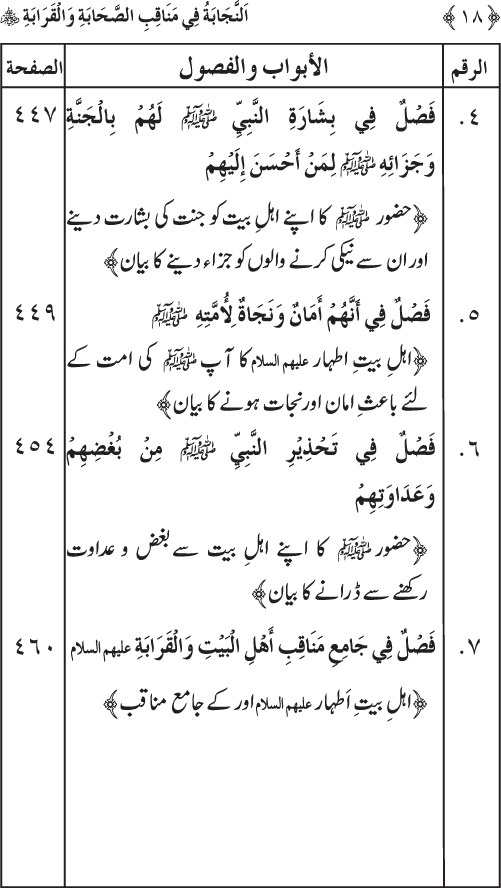 ﴿١٨﴾ اَلنَّجَابَةُ فِي مَنَاقِبِ الصَّحَابَةِ وَالْقَرَابَةِ
الرقم الأبواب والفصول الصفحة
٤. فَصْلٌ فِي بِشَارَةِ النَّبِيِّ ﷺ لَهُمْ بِالْجَنَّةِ ٤٤٧
وَجَزَائِهِ ﷺ لِمَنْ أَحْسَنَ إِلَيْهِمْ
﴿حضور ﷺ کا اپنے اہلِ بیت کو جنت کی بشارت دینے
اور ان سے نیکی کرنے والوں کو جزاء دینے کا بیان﴾
٥. فَصْلٌ فِي أَنَّهُمْ أَمَانٌ وَنَجَاةٌ لِأُمَّتِهِ ﷺ ٤٤٩
﴿اہلِ بیتِ اطہار علیہم السلام کا آپ ﷺ کی امت کے
لئے باعثِ امان اور نجات ہونے کا بیان﴾
٦. فَصْلٌ فِي تَحْذِيْرِ النَّبِيِّ ﷺ مِنْ بُغْضِهِمْ ٤٥٤
وَعَدَاوَتِهِمْ
﴿حضور ﷺ کا اپنے اہلِ بیت سے بغض و عداوت
رکھنے سے ڈرانے کا بیان﴾
٧. فَصْلٌ فِي جَامِعِ مَنَاقِبِ أَهْلِ الْبَيْتِ وَالْقَرَابَةِ علیہم السلام ٤٦٠
﴿اہلِ بیتِ اَطہار علیہم السلام اور کے جامع مناقب﴾